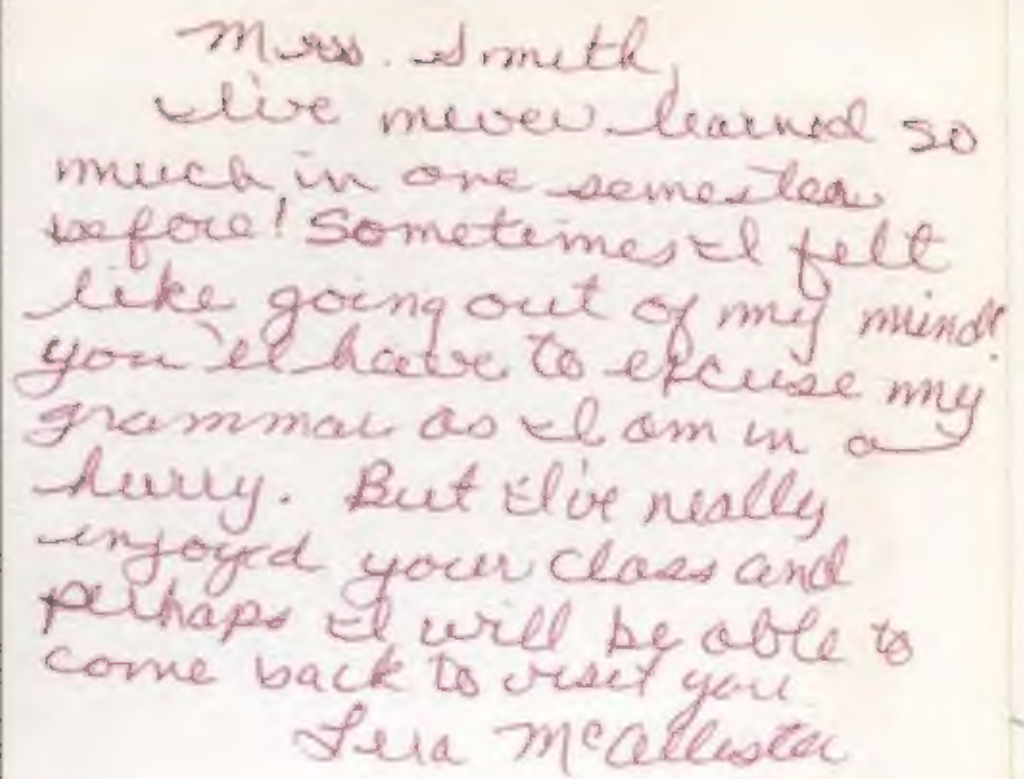 Mrs. Smith,
I've never learned so
much in one semester
before! Sometimes I felt
like going out of my mind!
you'll have to excuse my
grammar as I am in a
hurry. But I've really
enjoyed your class and
perhaps I will be able to
come back to visit you
McAllister